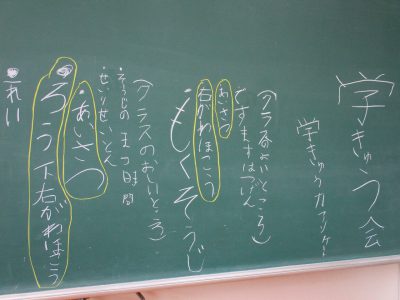 学きゅう会
学きゅうアンケート
(クラスのよいところ)
ですますはつげん
あさつ
右がわほこう
もくそうじ
(クラスのおいところ)
・そうじのまつ時間
・せいりせいとん
・あいさつ
・ろう下右がわほこう
・れい